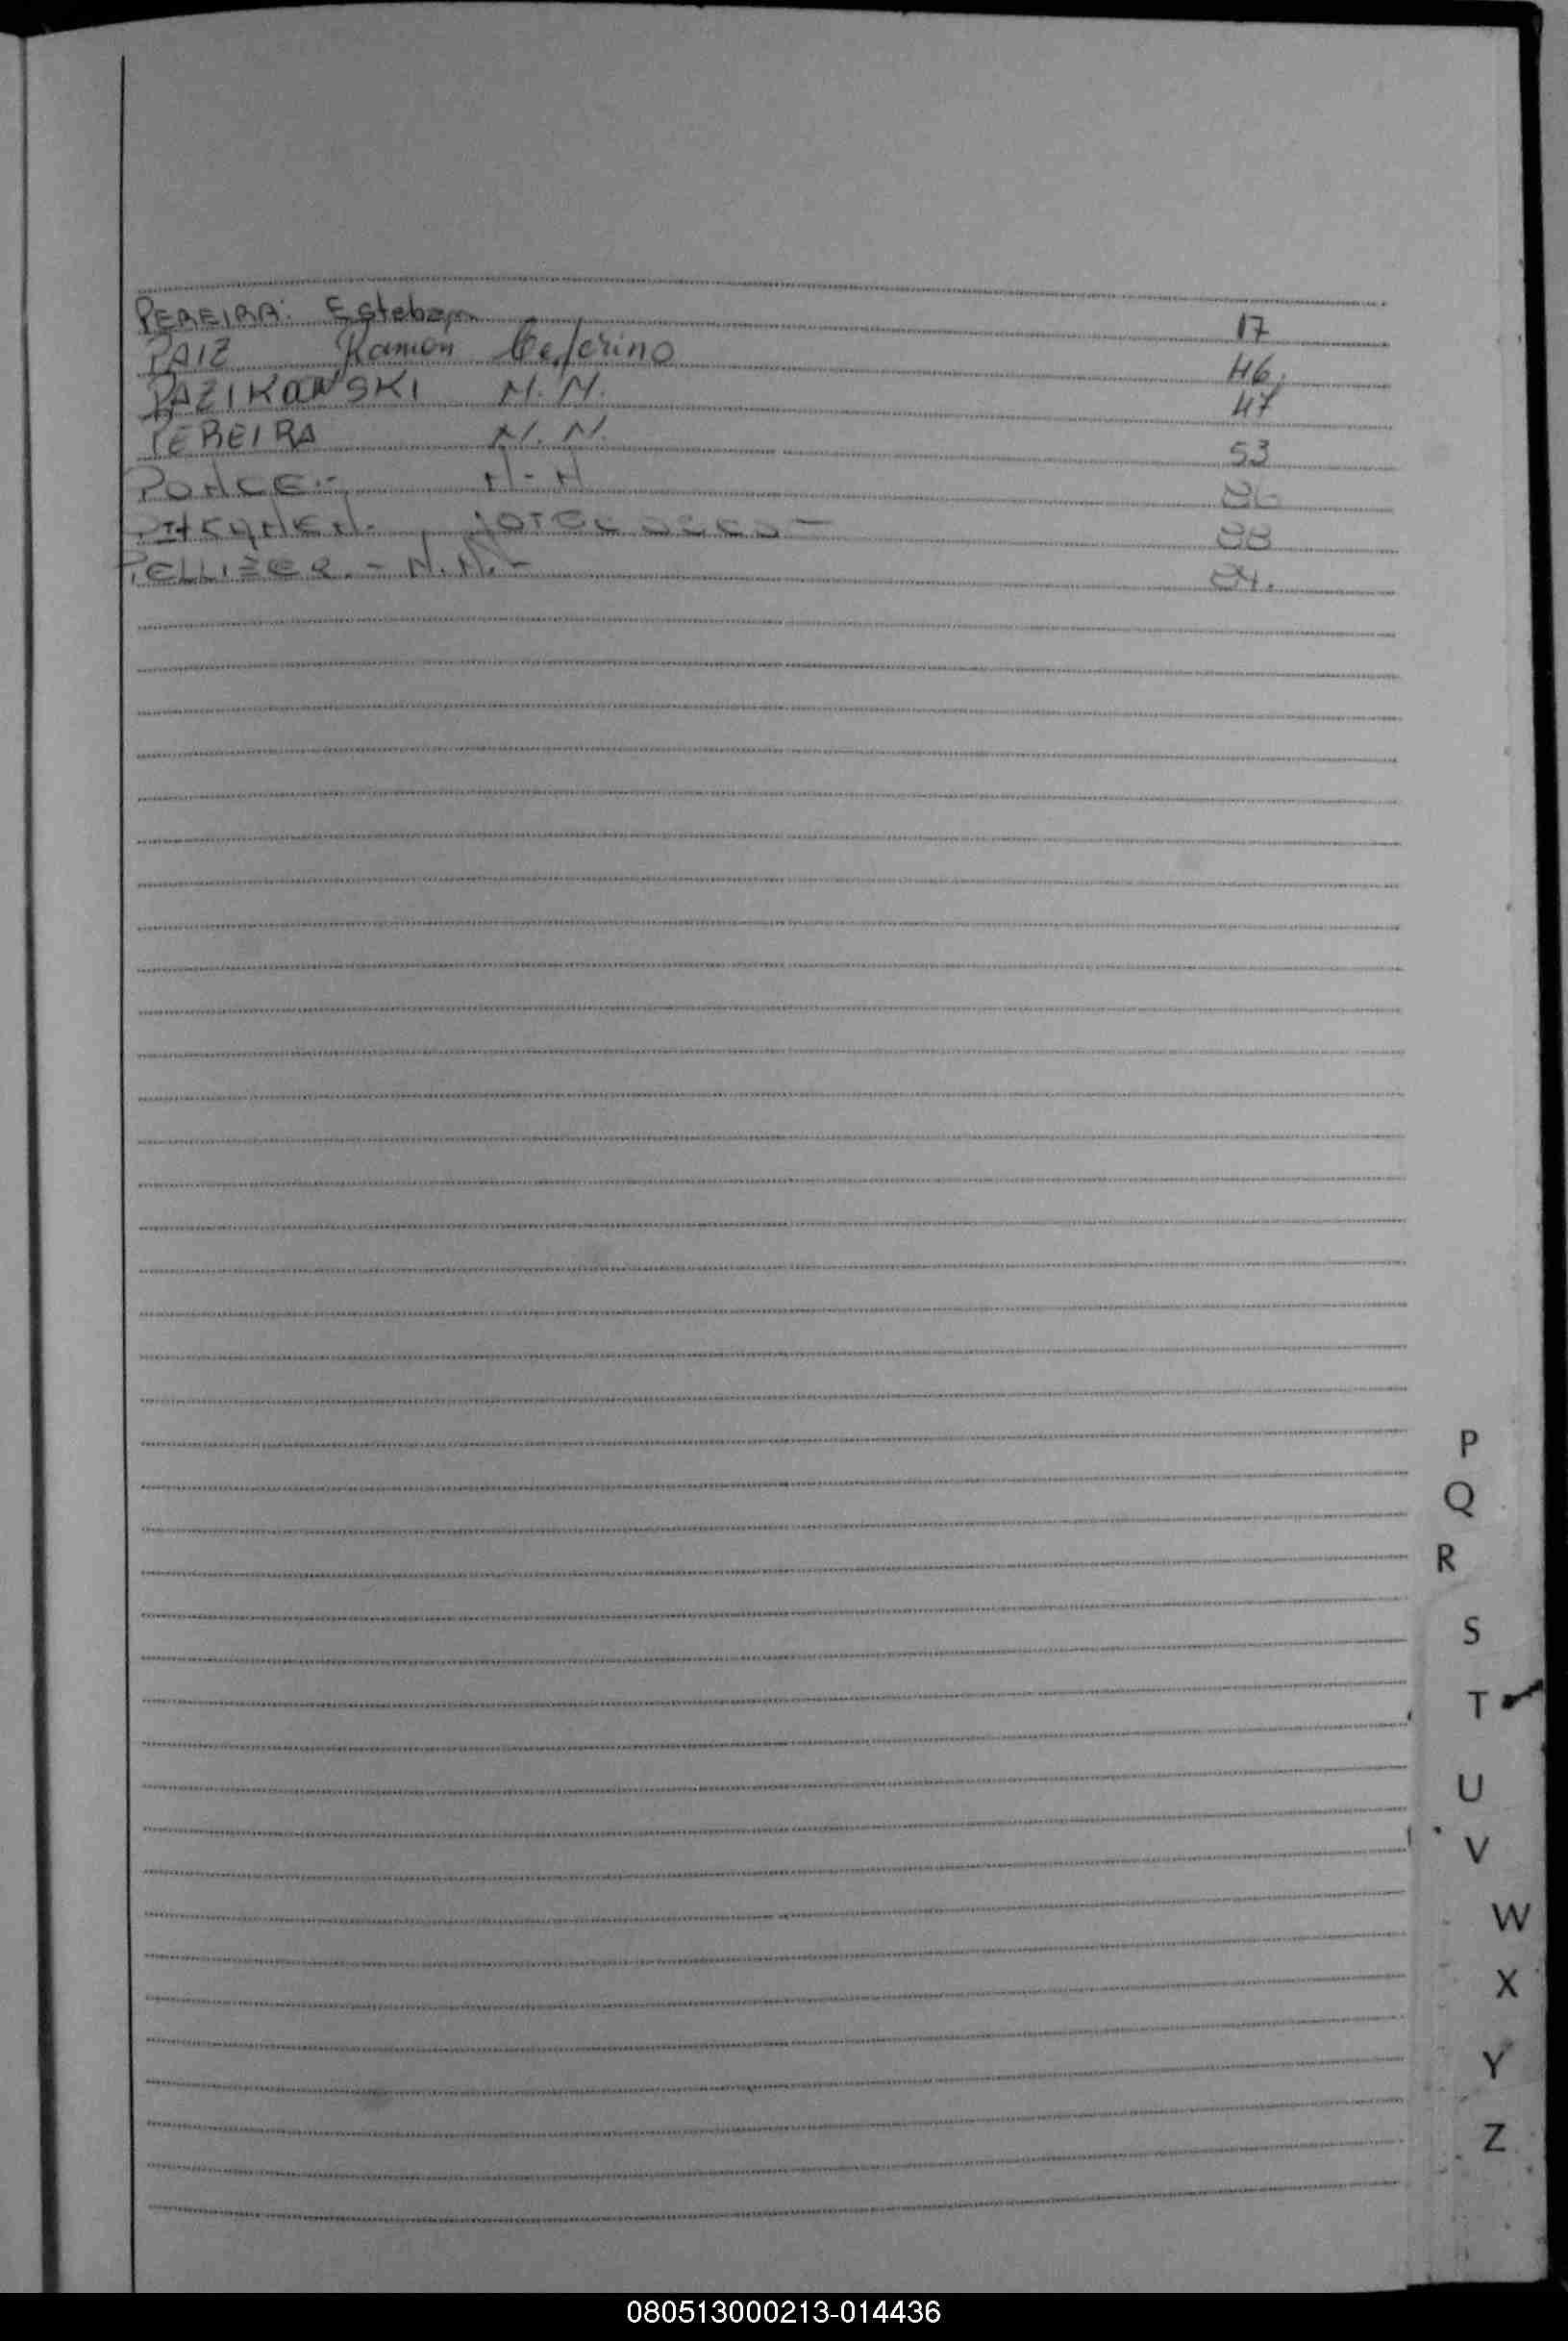 PEREIRA: Esteban 17
PAIZ Ramon Ceferino 46.
PAZIKOWSKI N.N. 47
PEREIRA N.N. 53
PONCE.- N-N
88
PELLIZER.- N.N.-
P
Q
R
S
T
U
V
W
X
Y
Z
080513000213-014436